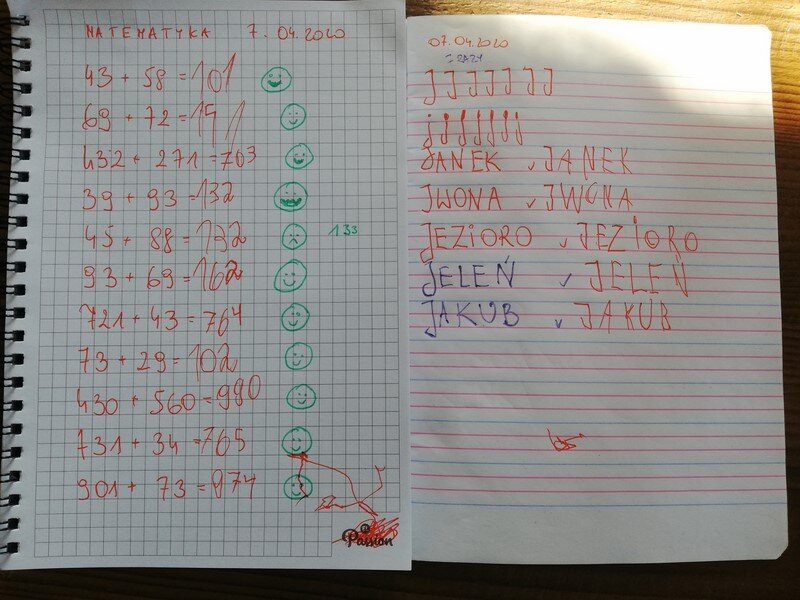 MATEMATYKA 7.04.2020
43 + 58 = 101
69 + 72 = 141
432 + 271 = 703
39 + 93 = 132
45 + 88 = 132 133
93 + 69 = 162
721 + 43 = 764
73 + 29 = 102
430 + 560 = 990
731 + 34 = 765
901 + 73 = 974
Passion
07.04.2020
3 RAZY
J J J J J J J
j j j j j j j
JANEK v JANEK
JWONA v JWONA
JEZiORO v JEZiORO
JELEŃ v JELEŃ
JAKUB v JAKUB